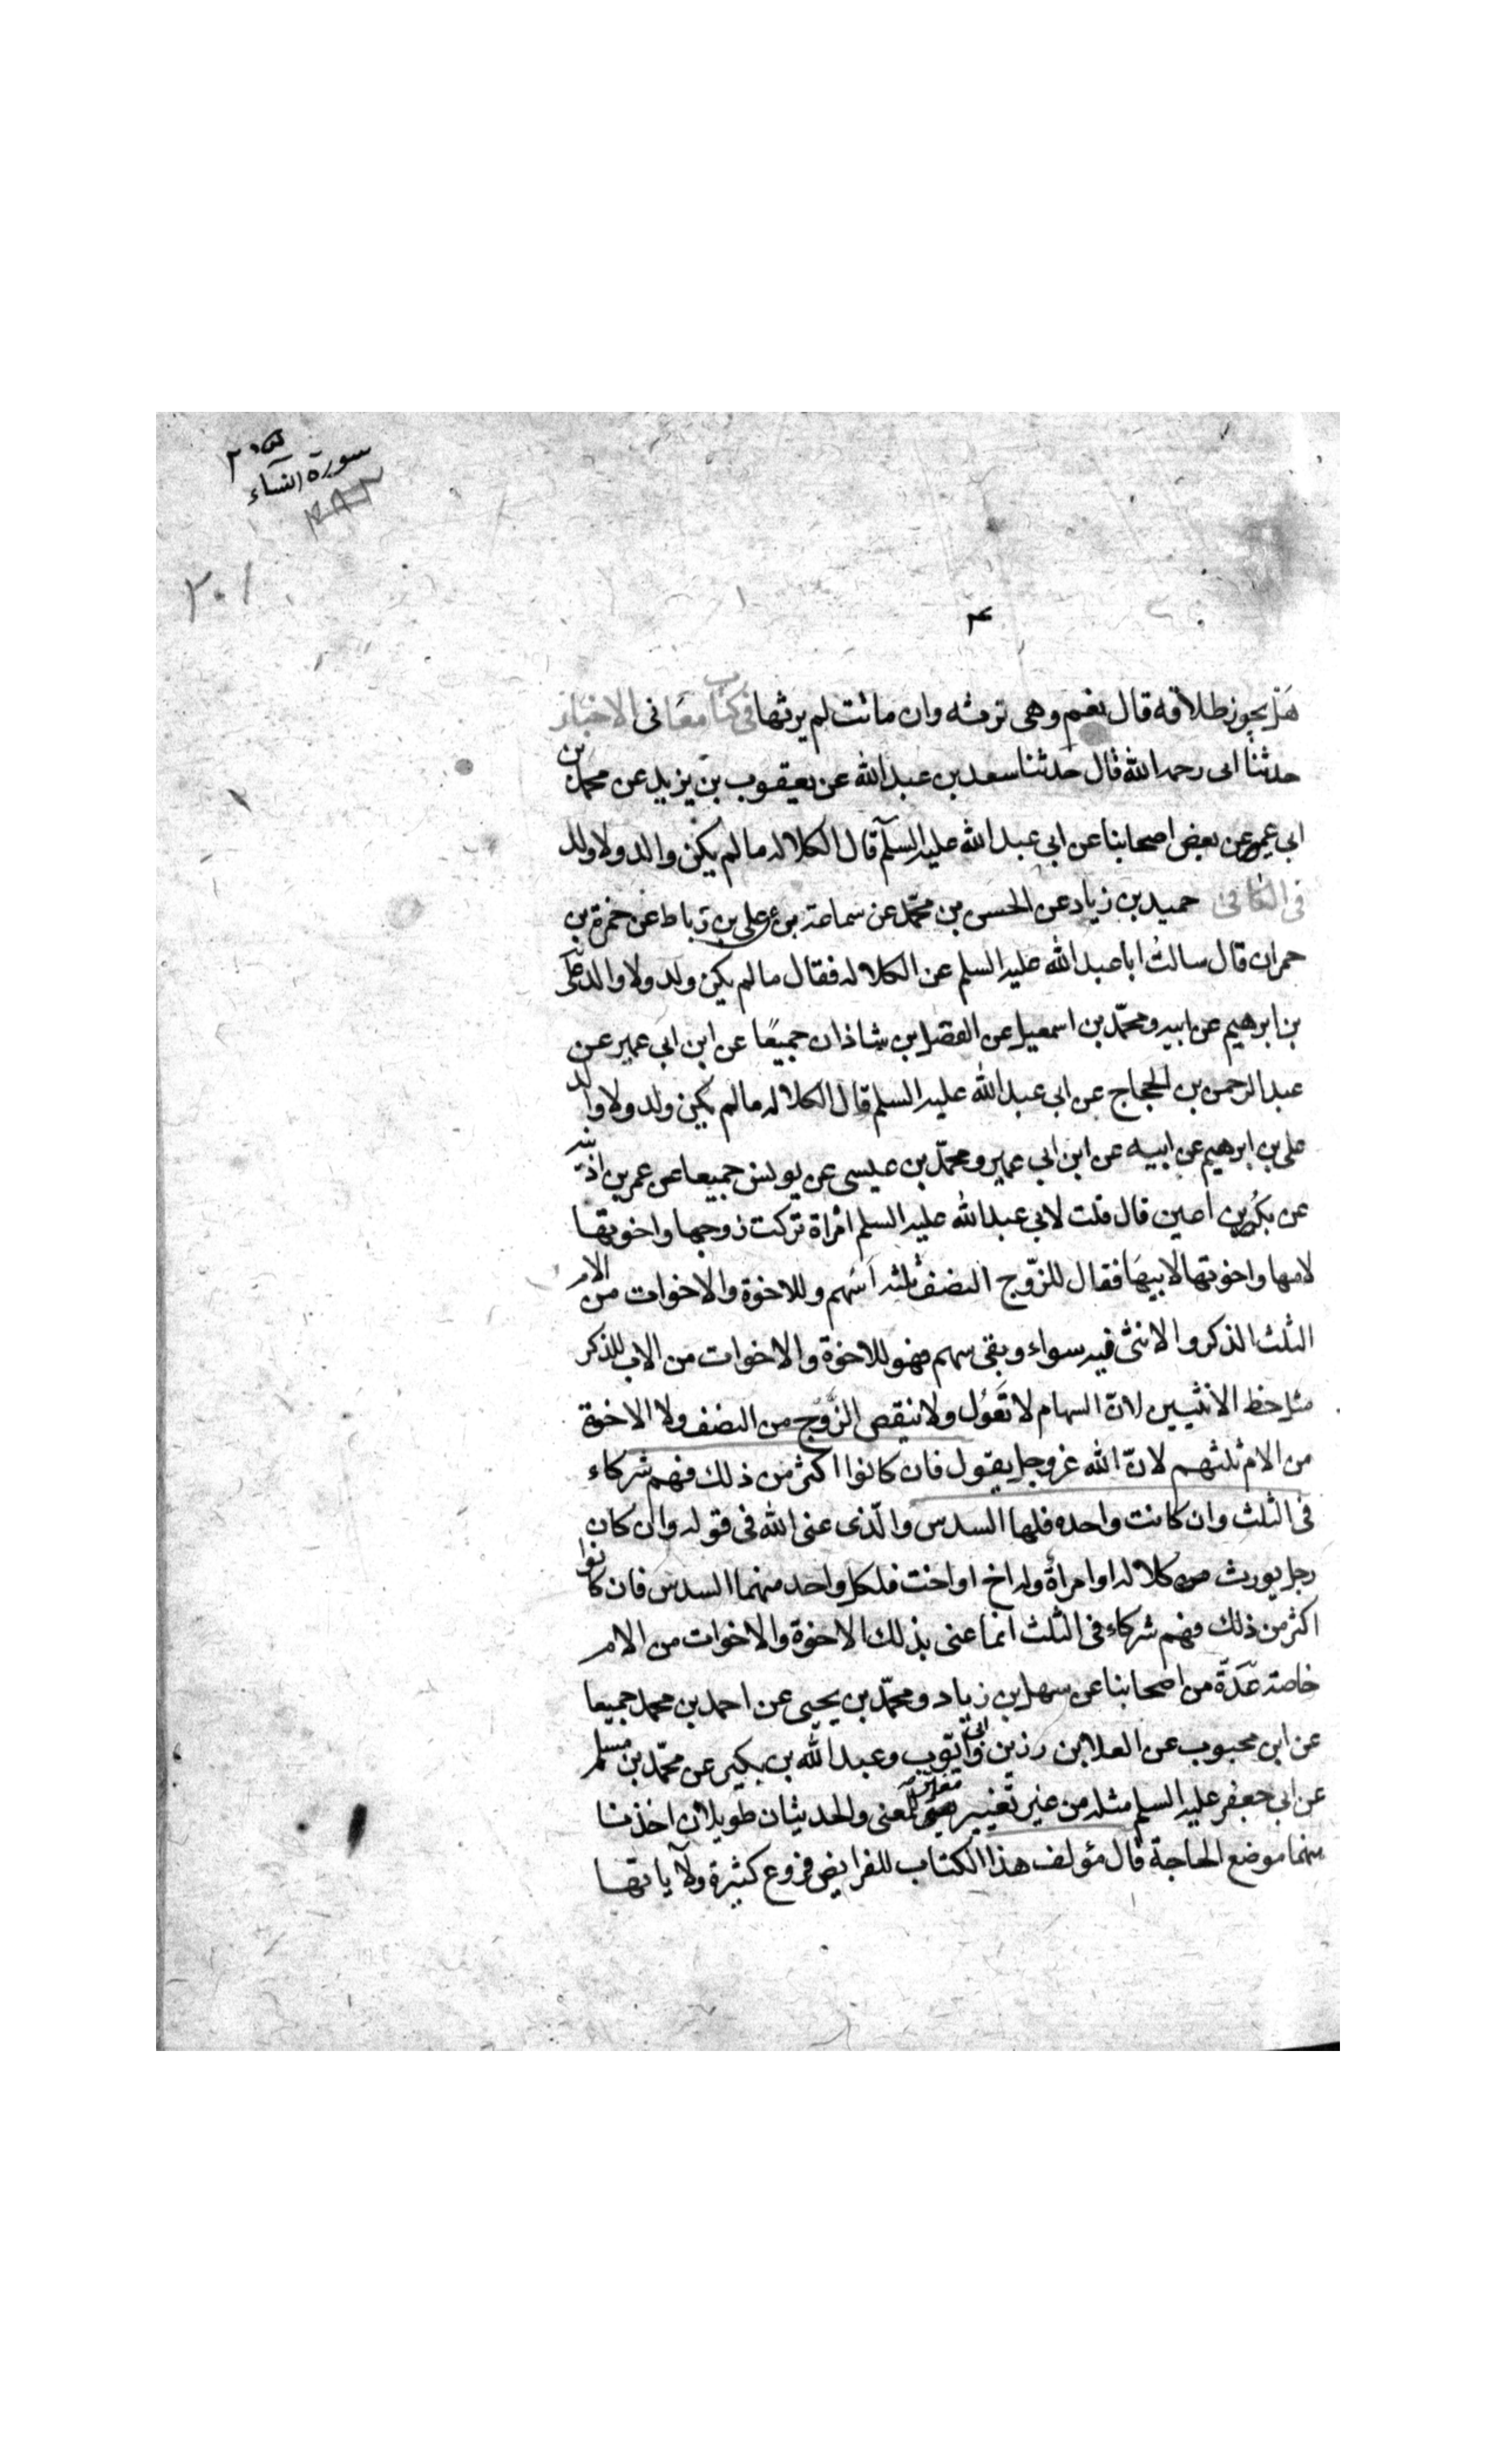 سورة النساء
٣٠١
٤
هل يجوز طلاقه قال نعم وهى ترثه وان ماتت لم يرثها فى كتاب معانى الاخبار
حدثنا ابى رحمه الله قال حدثنا سعد بن عبد الله عن يعقوب بن يزيد عن محمد بن
ابى عمير عن بعض اصحابنا عن ابى عبد الله عليه السلم قال الكلاله ما لم يكن والد ولا ولد
فى الكافى حميد بن زياد عن الحسن بن محمّد عن سماعة عن على بن رباط عن حمزة بن
حمران قال سالت ابا عبد الله عليه السلم عن الكلاله فقال ما لم يكن ولد ولا والد على
بن ابرهيم عن ابيه ومحمّد بن اسمعيل عن الفضل بن شاذان جميعًا عن ابن ابى عمير عن
عبد الرحمن بن الحجاج عن ابى عبد الله عليه السلم قال الكلاله ما لم يكن ولد ولا والد
على بن ابرهيم عن ابيه عن ابن ابى عمير ومحمّد بن عيسى عن يونس جميعا عن عمر بن اذينه
عن بكير بن اعين قال قلت لابى عبد الله عليه السلم امراة تركت زوجها واخوتها
لامها واخوتها لابيها فقال للزّوج النصف ثلثه اسهم وللاخوة والاخوات من الام
الثلث الذكر والانثى فيه سواء وبقى سهم فهو للاخوة والاخوات من الاب للذكر
مثل حظ الانثيين لانّ السهام لا تعول ولا ينقص الزّوج من النصف ولا الاخوة
من الام ثلثهم لانّ الله عز وجل يقول فان كانوا اكثر من ذلك فهم شركاء
فى الثلث وان كانت واحده فلها السدس والّذى عنى الله فى قوله وان كان
رجل يورث كلاله او امرأة وله اخ او اخت فلكل واحد منهما السدس فان كانوا
اكثر من ذلك فهم شركاء فى الثلث انما عنى بذلك الاخوة والاخوات من الام
خاصة عدّة من اصحابنا عن سهل بن زياد ومحمّد بن يحيى عن احمد بن محمد جميعا
عن ابن محبوب عن العلا بن رزين وابى ايّوب وعبد الله بن بكير عن محمّد بن مسلم
عن ابى جعفر عليه السلم مثله من غير تغيير مغير للمعنى والحديثان طويلان اخذنا
منهما موضع الحاجة قال مؤلف هذا الكتاب للفرايض فروع كثيرة ولآياتها